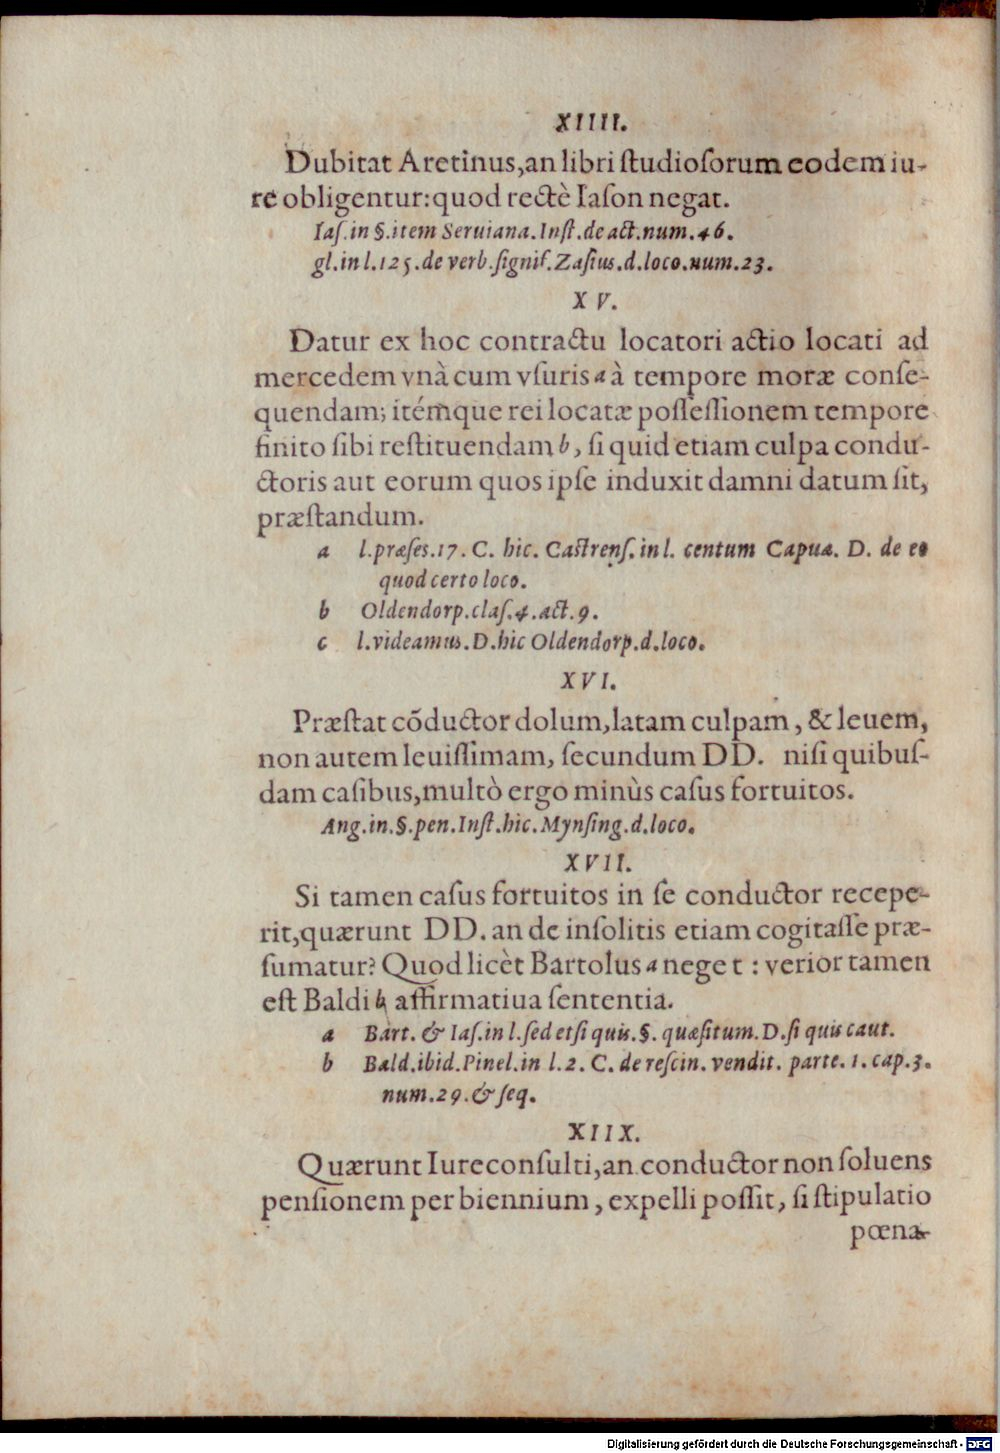 XIIII.
Dubitat Aretinus,an libri ſtudioſorum eodem iu-
re obligentur:quod rectè Iaſon negat.
Iaſ.in §.item Seruiana.Inſt.de act.num.46.
gl.in l.125.de verb.ſigniſ.Zaſius.d.loco.num.23.
XV.
Datur ex hoc contractu locatori actio locati ad
mercedem vnà cum vſuris a à tempore moræ conſe-
quendam; itémque rei locatæ poſſeſſionem tempore
finito ſibi reſtituendam b, ſi quid etiam culpa condu-
ctoris aut eorum quos ipſe induxit damni datum ſit,
præſtandum.
a l.præſes.17. C. hic. Caſtrenſ. in l. centum Capua. D. de eo
quod certo loco.
b Oldendorp.claſ.4.act.9.
c l.videamus.D.hic Oldendorp.d.loco.
XVI.
Præſtat cõductor dolum,latam culpam, & leuem,
non autem leuiſſimam, ſecundum DD. niſi quibuſ-
dam caſibus,multò ergo minùs caſus fortuitos.
Ang.in.§.pen.Inſt.hic.Mynſing.d.loco.
XVII.
Si tamen caſus fortuitos in ſe conductor recepe-
rit,quærunt DD. an de inſolitis etiam cogitaſſe præ-
ſumatur? Quod licèt Bartolus a neget : verior tamen
eſt Baldi b affirmatiua ſententia.
a Bart. & Iaſ.in l.ſed etſi quis.§. quæſitum.D.ſi quis caut.
b Bald.ibid.Pinel.in l.2. C. de reſcin. vendit. parte. 1. cap.3.
num.29.& ſeq.
XIIX.
Quærunt Iureconſulti,an conductor non ſoluens
penſionem per biennium, expelli poſſit, ſi ſtipulatio
pœna-
Digitalisierung gefördert durch die Deutsche Forschungsgemeinschaft - DFG